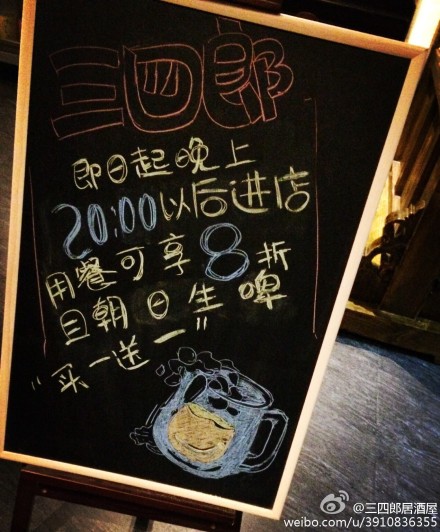 三四郎
即日起晚上
20:00以后进店
用餐可享8折
且朝日生啤
"买一送一"
@三四郎居酒屋
weibo.com/u/3910836355